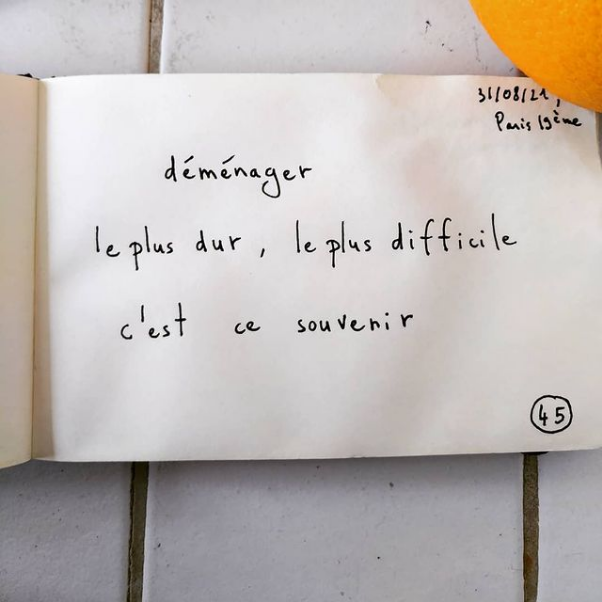 31/08/21,
Paris 19ème
déménager
le plus dur, le plus difficile
c'est ce souvenir
45